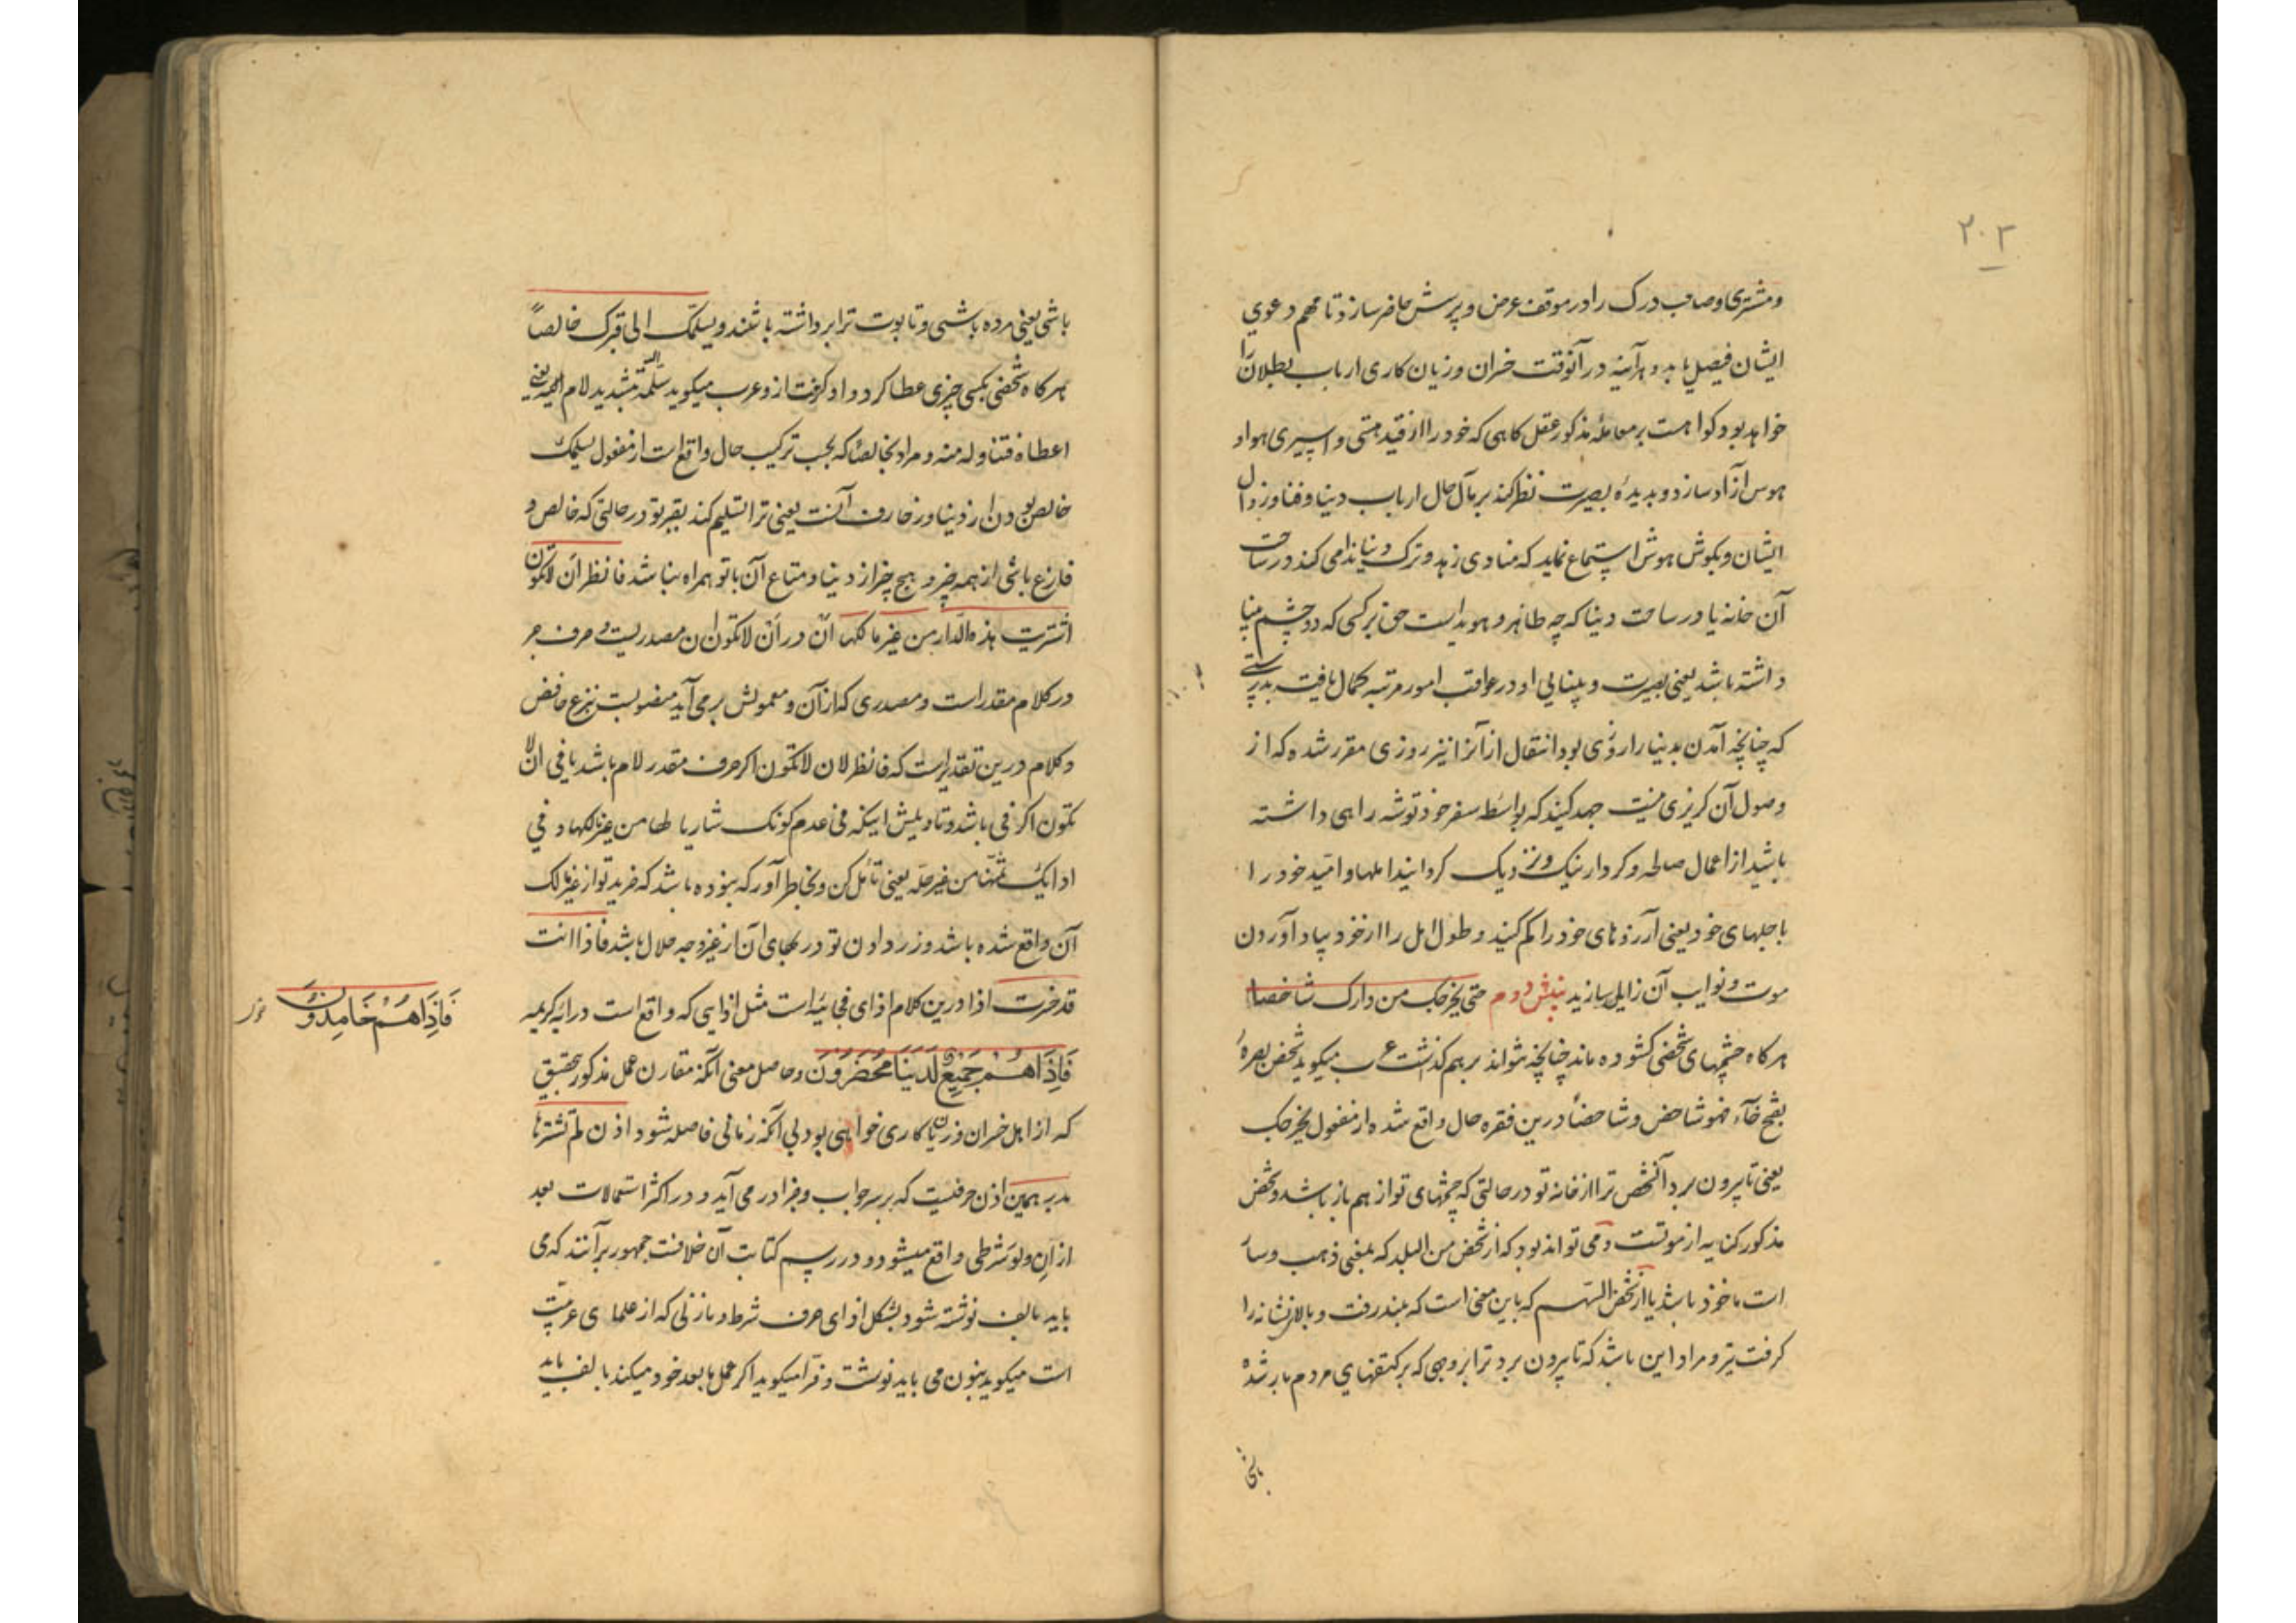 ۲۰۳
ومشتری وصاحب درک را در موقف عرض و پرسش حاضر سازد تا مهم دعوی
ایشان فیصل یابد و هرآینه در آنوقت خسران و زیان کاری ارباب بطلان را
خواهد بود گواهست بر معامله مذکور عقل گاهی که خود را از قید هستی و اسیری هوا و
هوس آزاد سازد و بدیدهٔ بصیرت نظر کند بر مآل حال ارباب دنیا و فنا و زوال
ایشان و بگوش هوش استماع نماید که منادی زهد و ترک دنیا ندا می کند در ساحت
آن خانه یا در ساحت دنیا که چه ظاهر و هویداست حق بر کسی که دو چشم بینا
داشته باشد یعنی بصیرت و بینایی او در عواقب امور مرتبه کمال یافته بدرستی
که چنانچه آمدن بدنیا را روزی بود انتقال از آنرا نیز روزی مقرر شده که از
وصول آن گریزی نیست جهد کنید که بواسطه سفر خود توشه راهی داشته
باشید از اعمال صالحه و کردار نیک و نزدیک گردانید املها و امید خود را
باجلهای خود یعنی آرزوهای خود را کم کنید و طول امل را از خود بیاد آوردن
موت و نوایب آن زایل سازید بینش دوم حتی یخرجک من دارک شاخصا
هرگاه چشمهای شخصی گشوده ماند چنانچه نتواند برهم گذاشت عرب میگوید شخص بصرهٔ
بفتح خاء فهو شاخص و شاخصاً درین فقره حال واقع شده از مفعول یخرجک
یعنی تا بیرون برد آنشخص ترا از خانه تو در حالتی که چشمهای تو از هم باز باشد و شخص
مذکور کنایه از موتست و می تواند بود که از شخص من البلد که بمعنی ذهب و سار
است ماخوذ باشد یا از شخص السهم که باین معنی است که بلند رفت و بالای نشانه را
گرفت تیر و مراد این باشد که تا بیرون برد ترا بروجهی که بر کتفهای مردم بار شده
باشی
باشی یعنی مرده باشی و تابوت ترا برداشته باشند و یسلمک الی قبرک خالصاً
هرگاه شخصی بکسی چیزی عطا کرد و او گرفت ازو عرب میگوید سلمته الیه بتشدید لام یعنی
اعطاه فتناوله منه و مراد بخالصاً که بحسب ترکیب حال واقع است از مفعول یسلمک
خالص بودن از دنیا و زخارف آنست یعنی ترا تسلیم کند بقبر تو در حالتی که خالص و
فارغ باشی از همه چیز و هیچ چیز از دنیا و متاع آن با تو همراه نباشد فانظر ان لاتکون
اشتریت هذه الدار من غیر مالکها ان در ان لاتکون ان مصدریست و حرف جر
در کلام مقدر است و مصدری که از آن و معمولش بر می آید منصوبست بنزع خافض
و کلام درین تقدیر است که فانظر لان لاتکون اگر حرف مقدر لام باشد یا فی ان لا
تکون اگر فی باشد و تاویلش اینکه فی عدم کونک شاریا لها من غیر مالکها و فی
ادائک ثمنها من غیر حله یعنی تأمل کن و بخاطر آور که نبوده باشد که خرید تو از غیر مالک
آن واقع شده باشد و زر دادن تو در بهای آن از غیر وجه حلال باشد فاذا انت
قد خسرت اذا درین کلام اذای فجائیه است مثل اذایی که واقع است در ایه کریمه
فَاِذَا هُمْ جَمِیعٌ لَدَیْنَا مُحْضَرُونَ و حاصل معنی آنکه مقارن عمل مذکور بتحقیق
که از اهل خسران و زیان کاری خواهی بود بی آنکه زمانی فاصله شود اذن لم تشترها
بدرهمین اذن حرفیست که بر سر جواب و جزا در می آید و در اکثر استعمالات بعد
از اِن و لو شرطی واقع میشود و در رسم کتابت آن خلافست جمهور برآنند که می
باید بالف نوشته شود بشکل اذای حرف شرط و مازنی که از علمای عربیت
است میگوید بنون می باید نوشت و فرا میگوید اگر عمل بما بعد خود میکند بالف باید
فَاِذَا هُمْ خَامِدُونَ